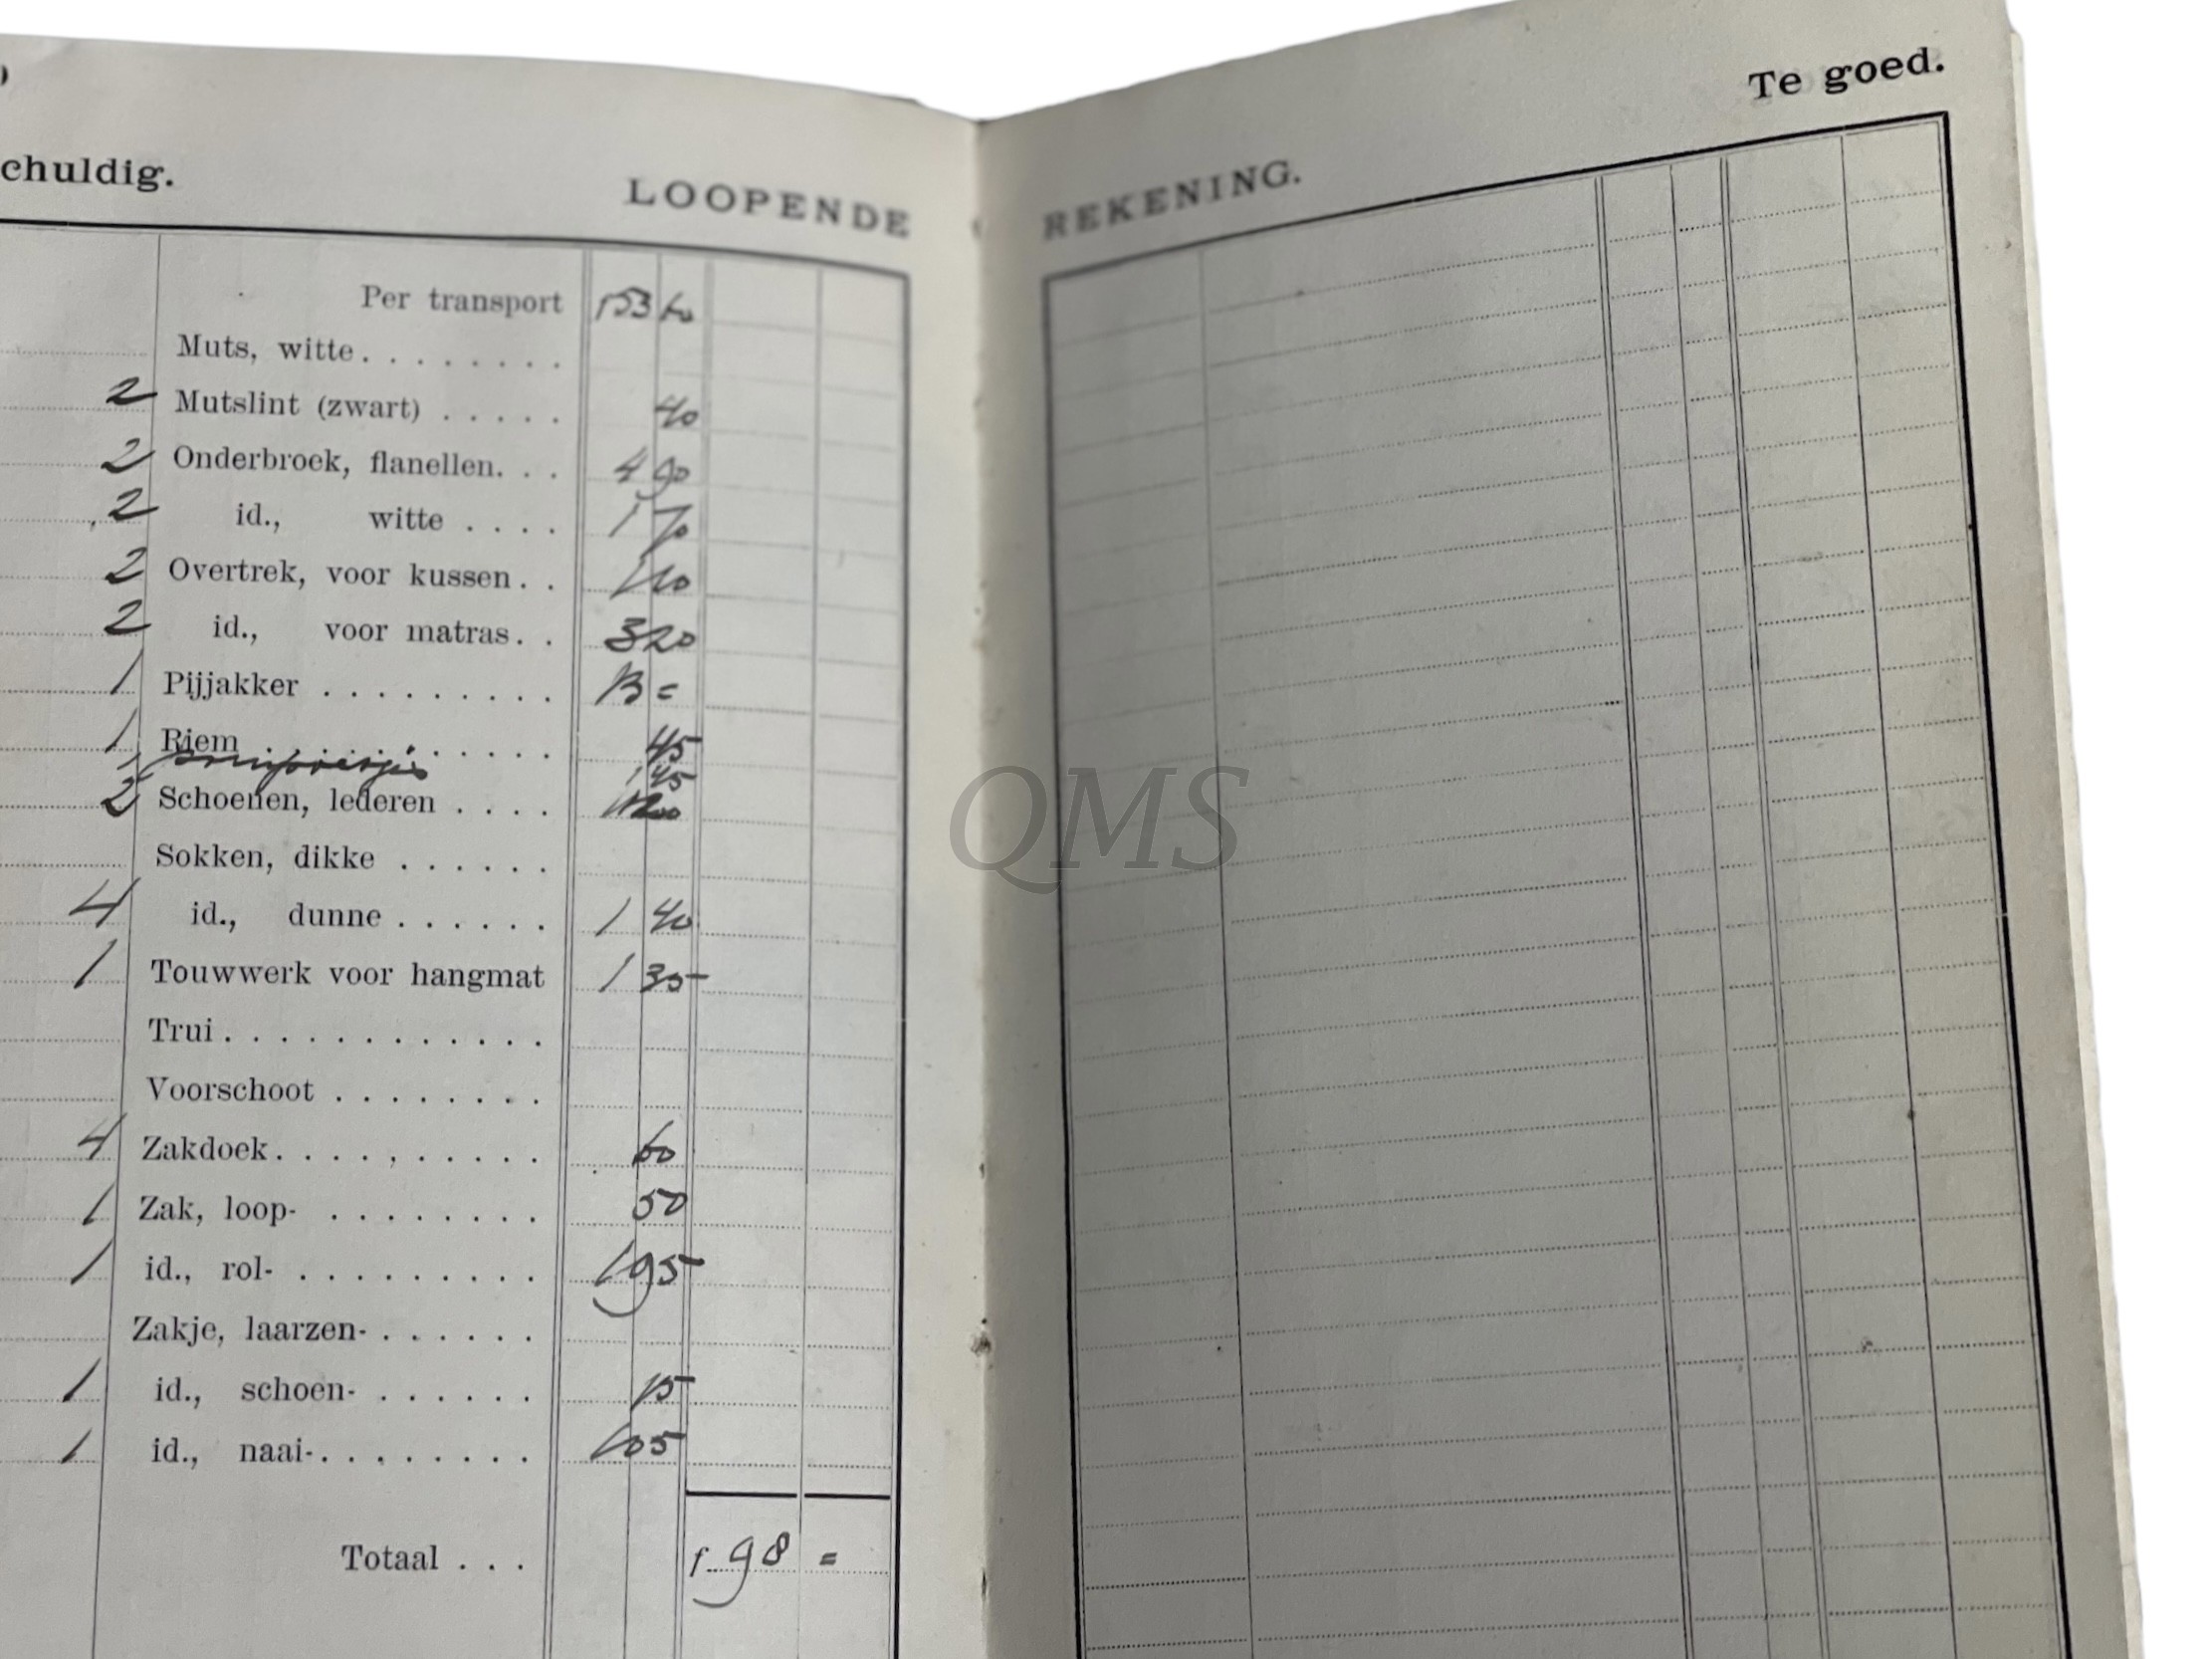 chuldig.
LOOPENDE
Per transport 153 60
Muts, witte . . . . . . . .
2 Mutslint (zwart) . . . . . 40
2 Onderbroek, flanellen. . . 4 90
2 id., witte . . . . 1 70
2 Overtrek, voor kussen. .
2 id., voor matras. . 3 20
1 Pijjakker . . . . . . . . . 13 =
1 Riem . . . . . . . 45
1 45
2 Schoenen, lederen . . . .
Sokken, dikke . . . . . .
4 id., dunne . . . . . . 1 40
1 Touwwerk voor hangmat 1 35
Trui . . . . . . . . . . . .
Voorschoot . . . . . . . .
4 Zakdoek . . . . . . . . . . 60
1 Zak, loop- . . . . . . . . 50
1 id., rol- . . . . . . . . . 1 95
Zakje, laarzen- . . . . . .
1 id., schoen- . . . . . . 15
1 id., naai- . . . . . . . . 1 05
Totaal . . . 198 =
Te goed.
REKENING.
QMS